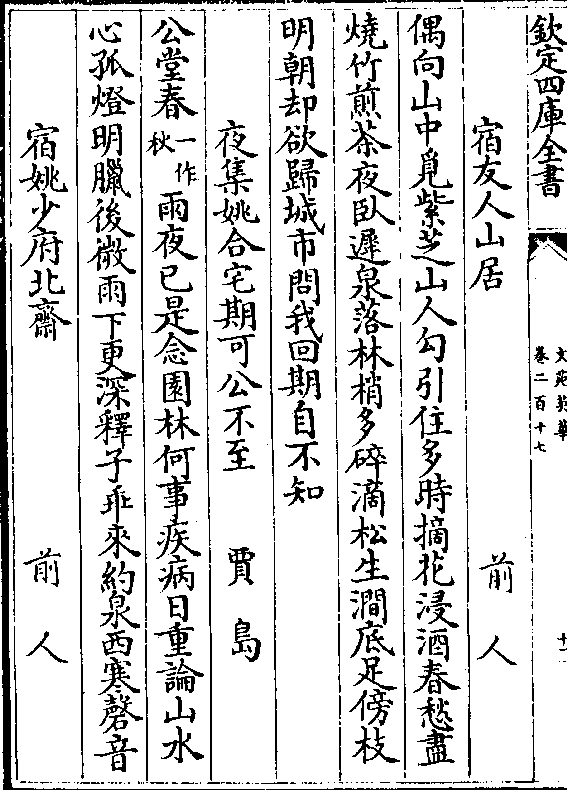 欽定四庫全書
文苑英華
卷二百十七
十一
宿友人山居　前人
偶向山中覓紫芝山人勾引住多時摘花浸酒春愁盡
燒竹煎茶夜臥遲泉落林梢多碎滴松生澗底足傍枝
明朝却欲歸城市問我回期自不知
夜集姚合宅期可公不至　賈島
公堂春一作秋雨夜已是念園林何事疾病日重論山水
心孤燈明臘後微雨下更深釋子乖來約泉西寒磬音
宿姚少府北齋　前人